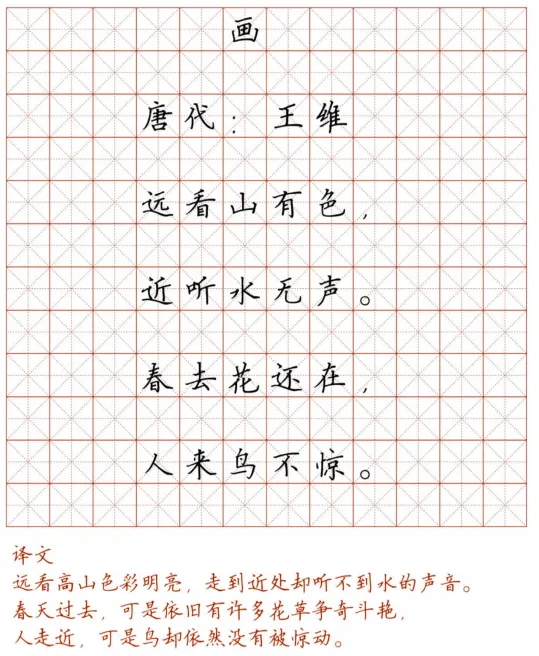 画
唐代：王维
远看山有色，
近听水无声。
春去花还在，
人来鸟不惊。
译文
远看高山色彩明亮，走到近处却听不到水的声音。
春天过去，可是依旧有许多花草争奇斗艳，
人走近，可是鸟却依然没有被惊动。